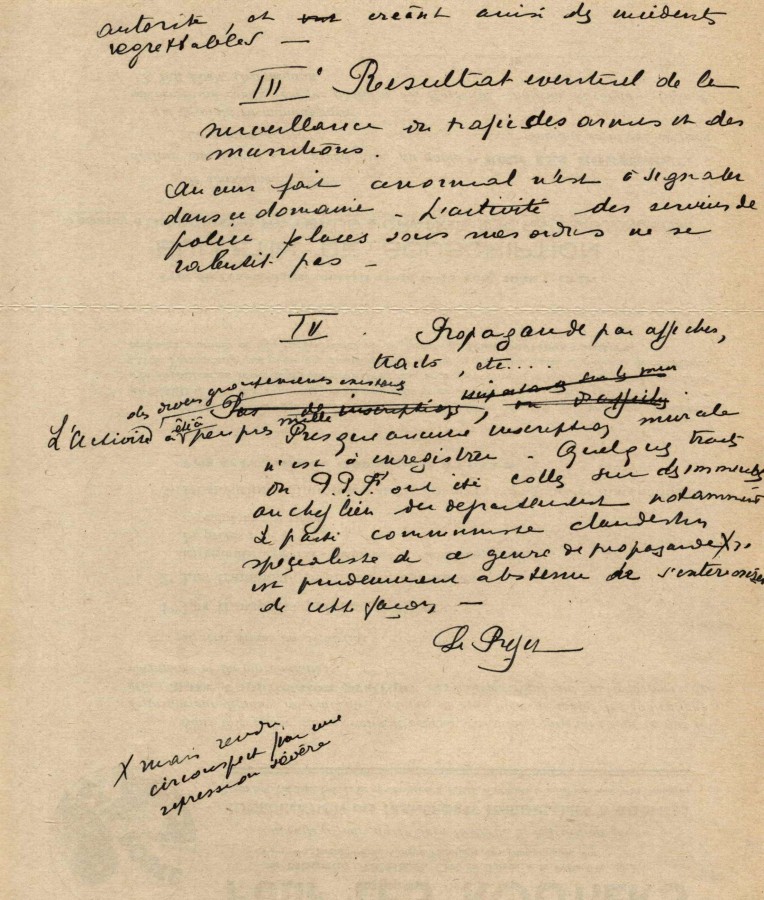 autorité, et creant ainsi des incidents
regrettables —
III° Resultat eventuel de la
surveillance du trafic des armes et des
munitions.
Aucun fait anormal n'est à signaler
dans ce domaine - L'activité des services de
police places sous mes ordres ne se
ralentit pas -
IV. Propagande par affiches,
tracts, etc....
des divers groupements existants
L'Activité a été à peu près nulle
Pas de inscriptions importantes sur les murs
ou d'affiches
Presque aucune inscription murale
n'est à enregistrer - Quelques tracts
du P.P.F. ont été collés sur des immeubles
au chef lieu du departement notamment
Le parti communiste clandestin
specialiste de ce genre de propagande X s'
est prudemment abstenu de s'exterioriser
de cette façon —
Le Prefet
X mais rendu
circonspect par une
repression sévère